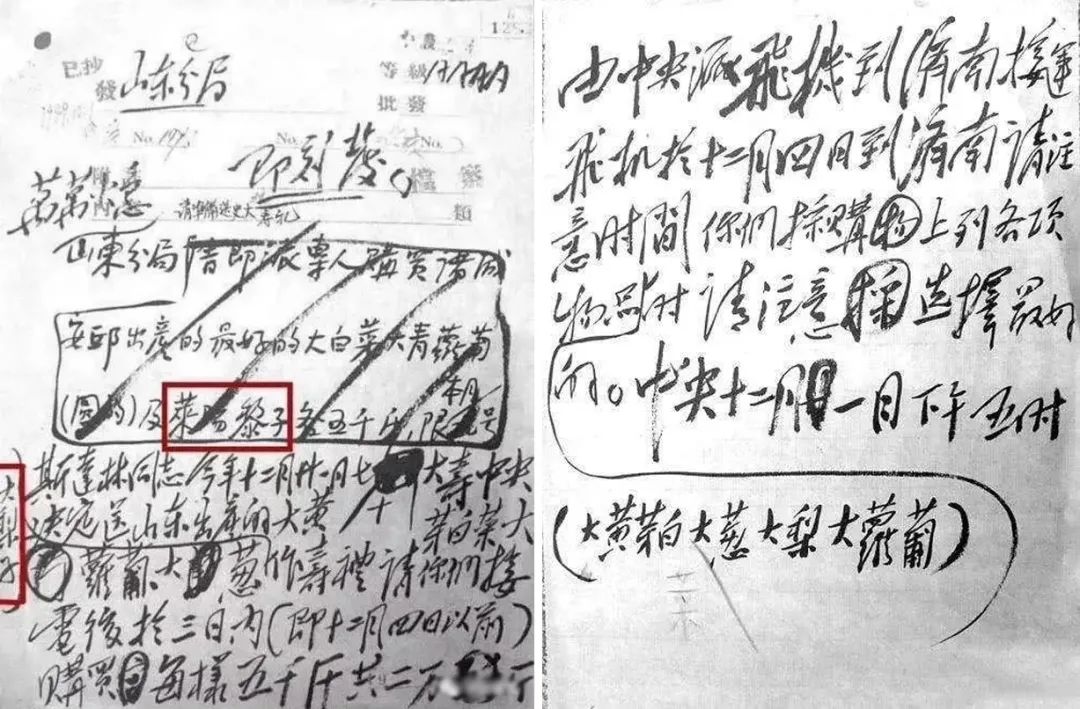 已抄
發 山东分局
等級
批發
1949.12.1
No.
No.
No.
即刻發。
檔案
類
萬萬火急
請準備送史大壽礼
山東分局 請即派專人購買諸城
安邱出產的最好的大白菜大青蘿蔔
(圓的)及萊陽黎子各五千斤,限本月
号
斯達林同志今年十二月廿一日七十大壽中央
決定送山东出產的大黄芽白菜大
大梨子
蘿蔔、大葱作壽禮請你們接
電後於三日内(即十二月四日以前)
購買每樣五千斤共二万斤
由中央派飛機到濟南接運
飛机於十二月四日到濟南請注
意时間 你們採購物上列各项
物品时 請注意採选擇最好
的。中央十二月一日下午五时
(大黄芽白大葱大梨大蘿蔔)
菜